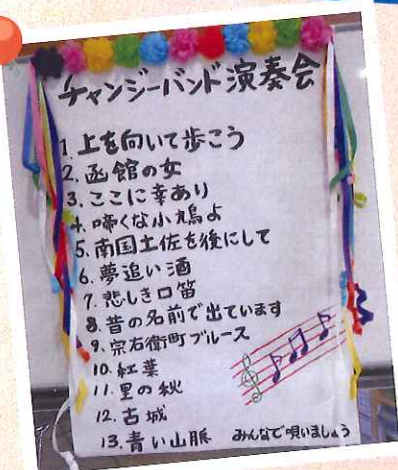 チャンジーバンド演奏会
1. 上を向いて歩こう
2. 函館の女
3. ここに幸あり
4. 啼くな小鳩よ
5. 南国土佐を後にして
6. 夢追い酒
7. 悲しき口笛
8. 昔の名前で出ています
9. 宗右衛町ブルース
10. 紅葉
11. 里の秋
12. 古城
13. 青い山脈 みんなで唄いましょう